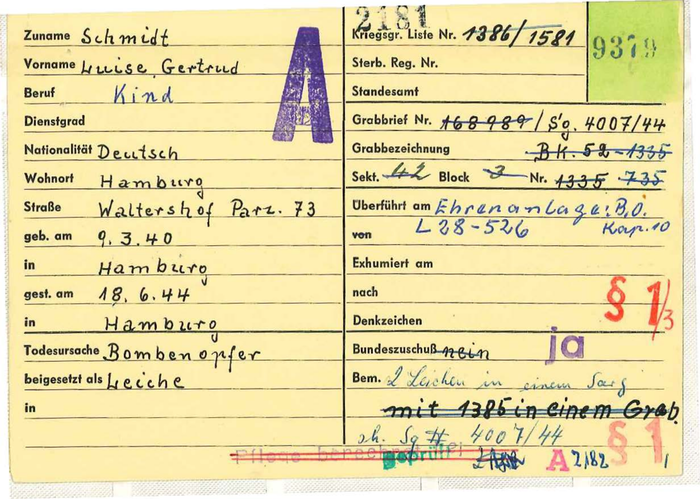 Zuname Schmidt
Vorname Luise Gertrud
Beruf Kind
Dienstgrad
Nationalität Deutsch
Wohnort Hamburg
Straße Waltershof Parz. 73
geb. am 9.3.40
in Hamburg
gest. am 18.6.44
in Hamburg
Todesursache Bombenopfer
beigesetzt als Leiche
in
A
2181
Kriegsgr. Liste Nr. 1386/1581
9379
Sterb. Reg. Nr.
Standesamt
Grabbrief Nr. 168989/Sg. 4007/44
Grabbezeichnung BK. 52-1335
Sekt. 42 Block 3 Nr. 1335 735
Überführt am Ehrenanlage: B.O.
von L 28-526 Kap. 10
Exhumiert am
nach
§ 1/3
Denkzeichen
Bundeszuschuß nein ja
Bem. 2 Leichen in einem Sarg
mit 1385 in einem Grab.
sh. Sg # 4007/44
§ 1
Pflege berechnet
geprüft
A 2182